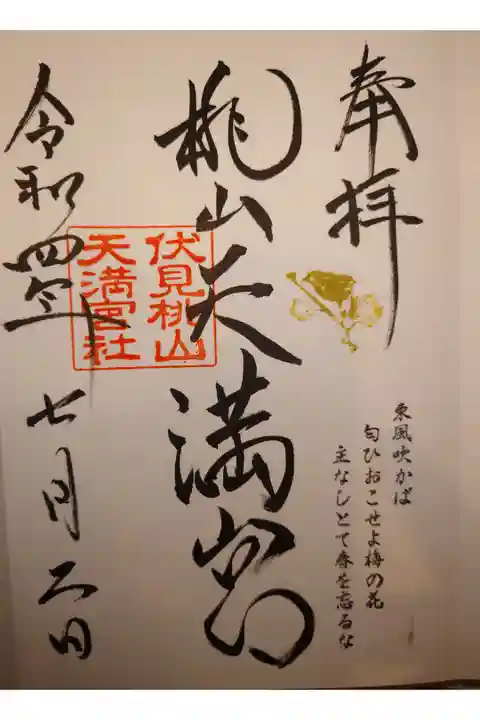 奉拝
東風吹かば
匂ひおこせよ梅の花
主なしとて春を忘るな
桃山天満宮
伏見桃山
天満宮社
令和四年七月二日